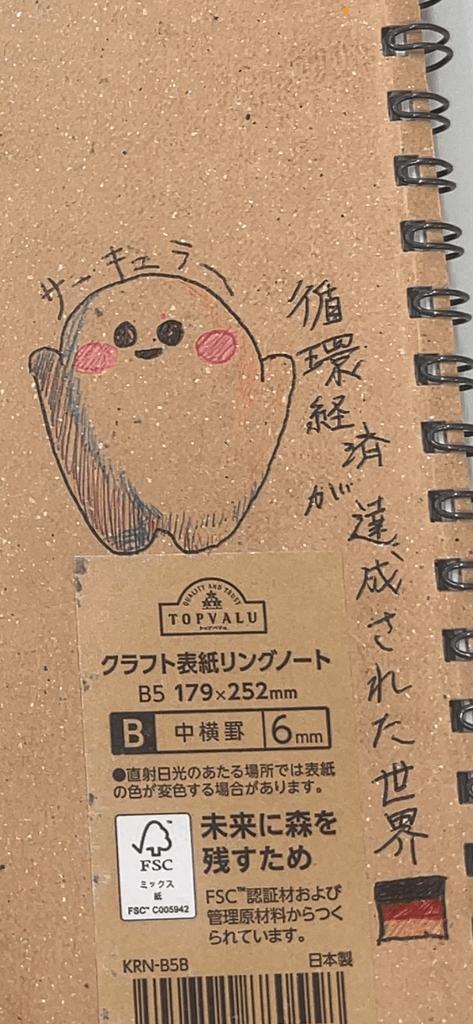 サーキュラー
循環経済が達成された世界
QUALITY AND TRUST
TOPVALU
トップバリュ
クラフト表紙リングノート
B5 179×252mm
B 中横罫 6mm
●直射日光のあたる場所では表紙
の色が変色する場合があります。
FSC
ミックス
紙
FSC™ C005942
未来に森を
残すため
FSC™認証材および
管理原材料からつく
られています。
KRN-B5B 日本製